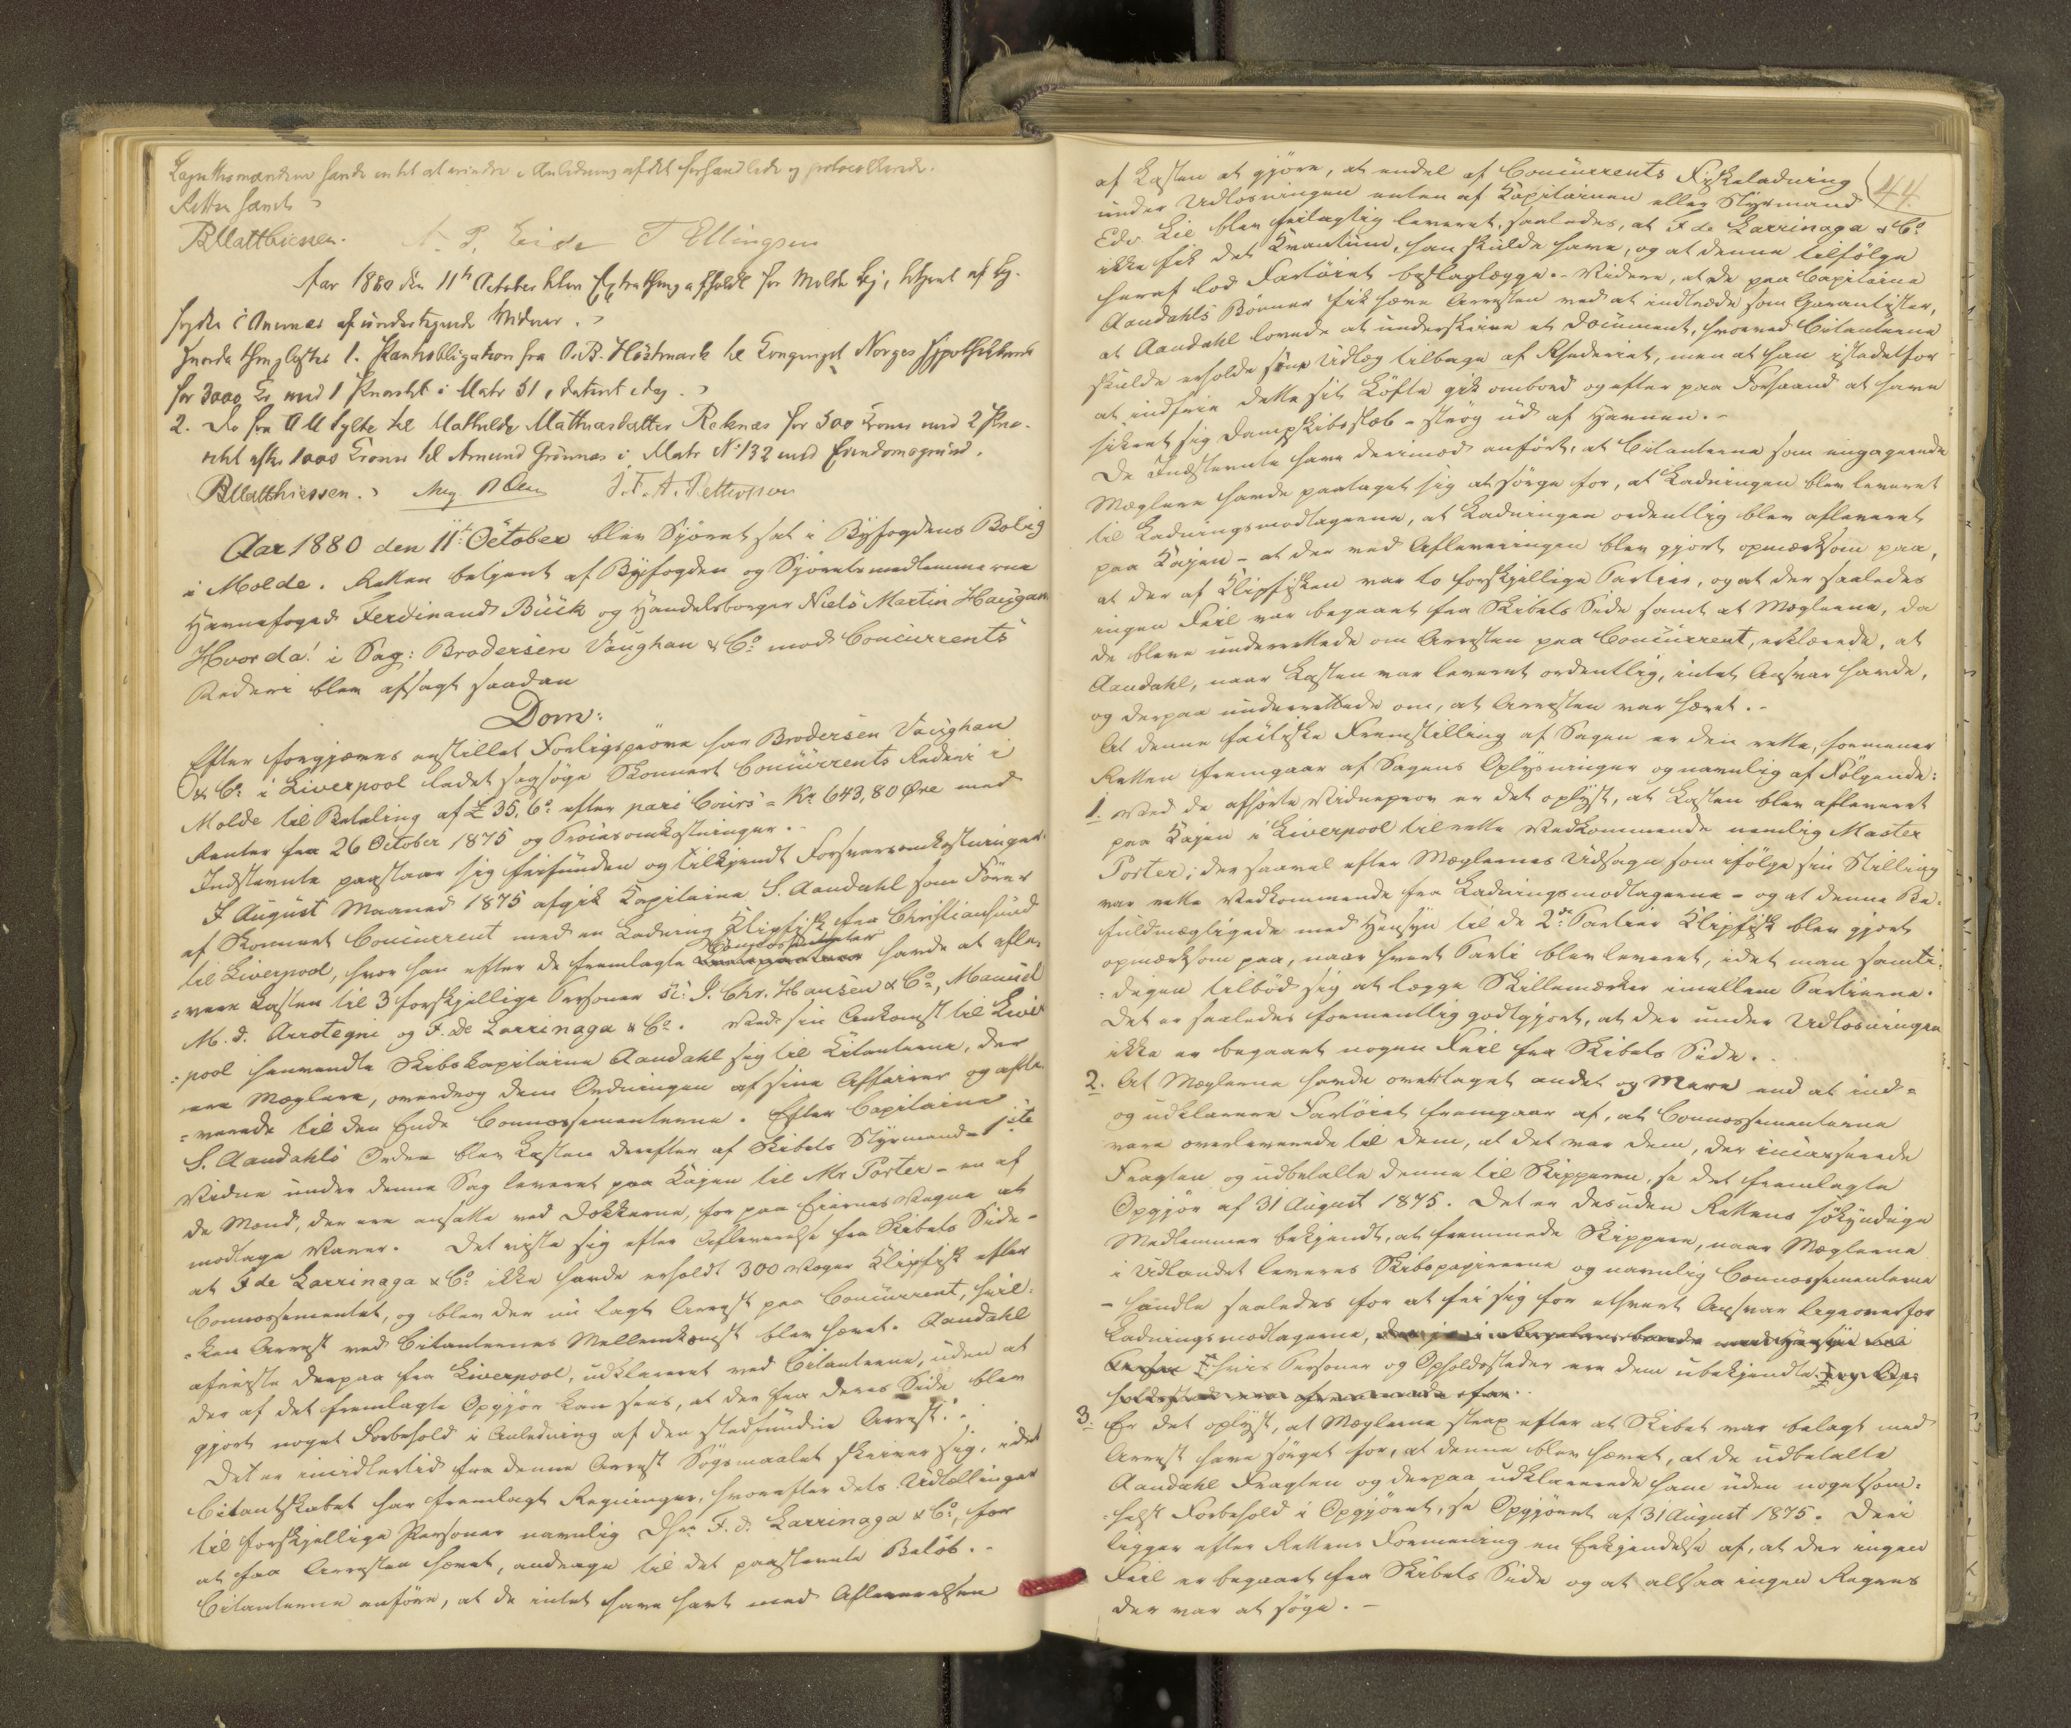 Lagrettesmændene havde intet at erindre i Anledning af det forhandlede og protocollerede.
Retten hævet
BMatthiessen. N. P. Eide T Ellingsen
Aar 1880 den 11te October blev Extrathing afholdt for Molde By, betjent af By-
fogden i Overvær af undertegnede Vidner.
Hvorda thinglystes 1. Pantobligation fra O. B. Höstmark til Kongeriget Norges Hypothekbank
for 3000 Kr med 1 Prioritet i Matr 51, dateret idag.
2. Do fra til Mathilde Mathiasdatter Reknæs for 500 Kroner med 2 Prio-
ritet efter 1000 Kroner til Amund Grönnes i Matr No 132 med Eiendomsgrund.
BMatthiessen. J. F. A. Petterson
Aar 1880 den 11te October blev Sjöret sat i Byfogdens Bolig
i Molde. Retten betjent af Byfogden og Sjöretsmedlemmerne
Havnefoged Ferdinand Bück og Handelsborger Niels Martin Haugan
Hvorda! i Sag: Brodersen Vaughan & Co mod Concurrents
Rederi blev afsagt saadan
Dom:
Efter forgjæves anstillet Forligspröve har Brodersen Vaughan
& Co i Liverpool ladet sagsöge Skonnert Concurrents Rederi i
Molde til Betaling af £ 35. 6s efter pari Cours = Kr 643,80 Øre med
Renter fra 26 October 1875 og Procesomkostninger.
Indstevnte paastaar sig frifunden og tilkjendt Forsvarsomkostninger.
I August Maaned 1875 afgik Kapitaine S. Aandahl som Förer
af Skonnert Concurrent med en Ladning Klipfisk fra Christiansund
til Liverpool, hvor han efter de fremlagte Connossementer havde at afle-
=vere Lasten til 3 forskjellige Personer sc: J. Chr. Hansen & Co, Manuel
M. d. Arrotegni og F. de Larrinaga & Co. Ved sin Ankomst til Liver
=pool henvendte Skibskapitaine Aandahl sig til Citanterne, der
ere Mæglere, overdrog dem Ordningen af sine Affairer og afle-
=verede til den Ende Connossementerne. Efter Capitaine
S. Aandahls Ordre blev Lasten derefter af Skibets Styrmand - 1ste
Vidne under denne Sag leveret paa Kajen til Mr Porter - en af
de Mænd, der ere ansatte ved Dokkerne, for paa Eiernes Vegne at
modtage Varer. Det viste sig efter Afleverelse fra Skibets Side -
at F de Larrinaga & Co ikke havde erholdt 300 Voger Klipfisk efter
Connossementet, og blev der nu lagt Arrest paa Concurrent, hvil-
=ken Arrest ved Citanternes Mellemkomst blev hævet. Aandahl
afreiste derpaa fra Liverpool, udklareret ved Citanterne, uden at
der af det fremlagte Opgjör kan sees, at der fra deres Side blev
gjort noget Forbehold i Anledning af den stedfundne Arrest.
Det er imidlertid fra denne Arrest Sögsmaalet skriver sig, idet
Citantskabet har fremlagt Regninger, hvorefter dets Udtællinger
til forskjellige Personer navnlig Dhrr F. d. Larrinaga & Co, for
at faa Arresten hævet, andrage til det paastevnte Belöb.
Citanterne anföre, at de intet have havt med Afleverelsen
44
af Lasten at gjöre, at endel af Concurrents Fiskeladning
under Udlosningen enten af Kapitainen eller Styrmand
Edv. Lie blev feilagtig leveret, saaledes, at F de Larrinaga & Co
ikke fik det Kvantum, han skulde have, og at denne tilfölge
heraf lod Fartöiet beslaglægge. - Videre, at de paa Capitaine
Aandahls Bönner fik hæve Arresten ved at indtræde som Garantister,
at Aandahl lovede at underskrive et Document, hvorved Citanterne
skulde erholde sine Udlæg tilbage af Rhederiet, men at han istedetfor
at indfrie dette sit Löfte gik ombord og efter paa Forhaand at have
sikret sig Dampskibsslæb - strög ud af Havnen. -
De Indstevnte have derimod anfört, at Citanterne som engagerede
Mæglere havde paataget sig at sörge for, at Ladningen blev leveret
til Ladningsmodtagerne, at Ladningen ordentlig blev afleveret
paa Kajen - at der ved Afleveringen blev gjort opmærksom paa,
at der af Klipfisken var to forskjellige Partier, og at der saaledes
ingen Feil var begaaet fra Skibets Side samt at Mæglerne, da
de bleve underrettede om Arresten paa Concurrent, erklærede, at
Aandahl, naar Lasten var leveret ordentlig, intet Ansvar havde,
og derpaa underrettede om, at Arresten var hævet. -
At denne factiske Fremstilling af Sagen er den rette, formener
Retten fremgaar af Sagens Oplysninger og navnlig af Fölgende:
1. Ved de afhörte Vidneprov er det oplyst, at Lasten blev afleveret
paa Kajen i Liverpool til rette Vedkommende nemlig Master
Porter; der saavel efter Mæglernes Udsagn som ifölge sin Stilling
var rette Vedkommende fra Ladningsmodtagerne - og at denne Be-
fuldmægtigede med Hensyn til de 2de Partier Klipfisk blev gjort
opmærksom paa, naar hvert Parti blev leveret, idet man samti-
=digen tilböd sig at lægge Skillemærker imellem Partierne.
Det er saaledes formentlig godtgjort, at der under Udlosningen
ikke er begaaet nogen Feil fra Skibets Side.
2. At Mæglerne havde overtaget andet og mere end at ind-
og udklarere Fartöiet fremgaar af, at Connossementerne
vare overleverede til dem, at det var dem, der incasserede
Fragten og udbetalte denne til Skipperen, se det fremlagte
Opgjör af 31 August 1875. Det er desuden Rettens sökyndige
Medlemmer bekjendt, at fremmede Skippere, naar Mæglerne
i Udlandet leveres Skibspapirerne og navnlig Connossementerne
- handle saaledes for at fri sig for ethvert Ansvar ligeoverfor
Ladningsmodtagerne,
hvis Personer og Opholdssteder ere dem ubekjendte.
3. Er det oplyst, at Mæglerne strax efter at Skibet var belagt med
Arrest have sörget for, at denne blev hævet, at de udbetalte
Aandahl Fragten og derpaa udklarerede ham uden nogetsom-
=helst Forbehold i Opgjöret, se Opgjöret af 31 August 1875. Deri
ligger efter Rettens Formening en Erkjendelse af, at der ingen
Feil er begaaet fra Skibets Side og at altsaa ingen Regres
der var at söge. -